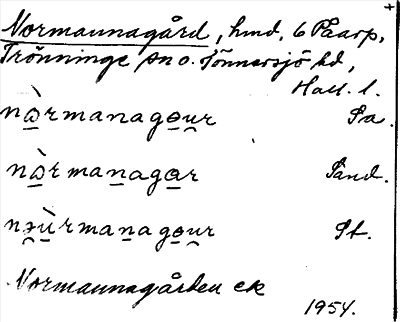 Normannagård, hmd, 6 Påarp,
Trönninge sn o. Tönnersjö hd,
Hall. l.
nàrmanagour Sa.
nàrmanagar Sand.
nəùrmanagour St.
Normannagården ek
1954.